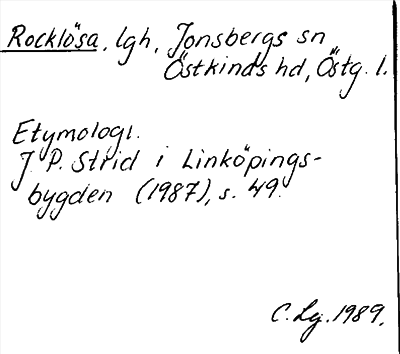 Rocklösa, lgh, Jonsbergs sn
Östkinds hd, Östg. l.
Etymologi.
J. P. Strid i Linköpings-
bygden (1987), s. 49.
C. Lg. 1989.